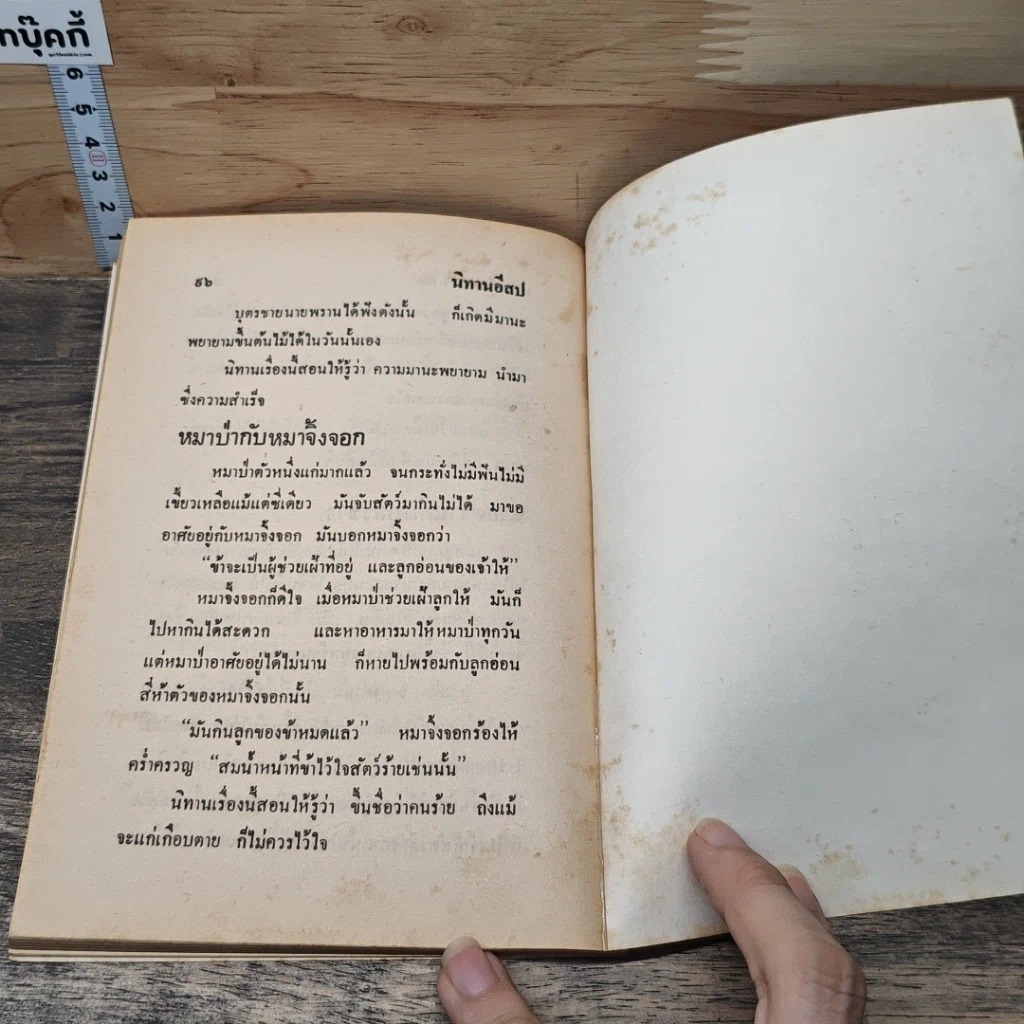 ทบุ๊คกี้
6
5
4
3
2
1
๙๖ นิทานอีสป
บุตรชายนายพรานได้ฟังดังนั้น ก็เกิดมีมานะ
พยายามขึ้นต้นไม้ได้ในวันนั้นเอง
นิทานเรื่องนี้สอนให้รู้ว่า ความมานะพยายาม นำมา
ซึ่งความสำเร็จ
หมาป่ากับหมาจิ้งจอก
หมาป่าตัวหนึ่งแก่มากแล้ว จนกระทั่งไม่มีฟันไม่มี
เขี้ยวเหลือแม้แต่ซี่เดียว มันจับสัตว์มากินไม่ได้ มาขอ
อาศัยอยู่กับหมาจิ้งจอก มันบอกหมาจิ้งจอกว่า
“ข้าจะเป็นผู้ช่วยเฝ้าที่อยู่ และลูกอ่อนของเจ้าให้”
หมาจิ้งจอกก็ดีใจ เมื่อหมาป่าช่วยเฝ้าลูกให้ มันก็
ไปหากินได้สะดวก และหาอาหารมาให้หมาป่าทุกวัน
แต่หมาป่าอาศัยอยู่ได้ไม่นาน ก็หายไปพร้อมกับลูกอ่อน
สี่ห้าตัวของหมาจิ้งจอกนั้น
“มันกินลูกของข้าหมดแล้ว” หมาจิ้งจอกร้องไห้
คร่ำครวญ “สมน้ำหน้าที่ข้าไว้ใจสัตว์ร้ายเช่นนั้น”
นิทานเรื่องนี้สอนให้รู้ว่า ขึ้นชื่อว่าคนร้าย ถึงแม้
จะแก่เกือบตาย ก็ไม่ควรไว้ใจ